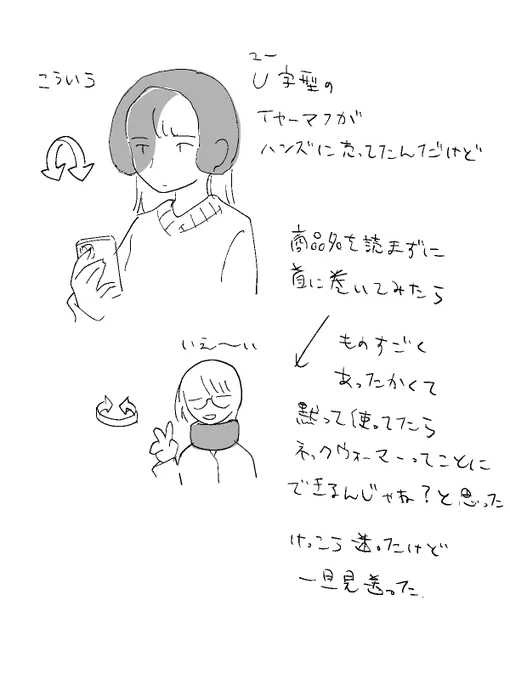 こういう
ユー
U字型の
イヤーマフが
ハンズに売ってたんだけど
商品名を読まずに
首に巻いてみたら
ものすごく
あったかくて
いぇ〜い
黙って使ってたら
ネックウォーマーってことに
できるんじゃね?と思った
けっこう迷ったけど
一旦見送った.